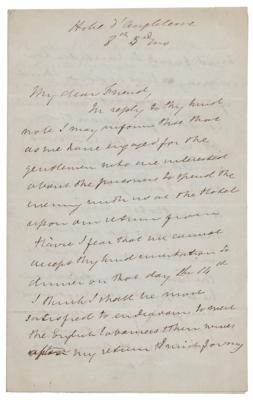 Hotel d'Angleterre
8th 3rd Mo
My dear Friend,
In reply to thy kind
note I may inform thee that
as we have engaged for the
gentlemen who are interested
about the prisoners to spend the
evening with us at the Hotel
upon our return from
Havre I fear that we cannot
accept thy kind invitation to
dinner on that day the 14th
I think I shall be most
satisfied to endeavour to meet
the English Labourers & their wives
my return I wish for my